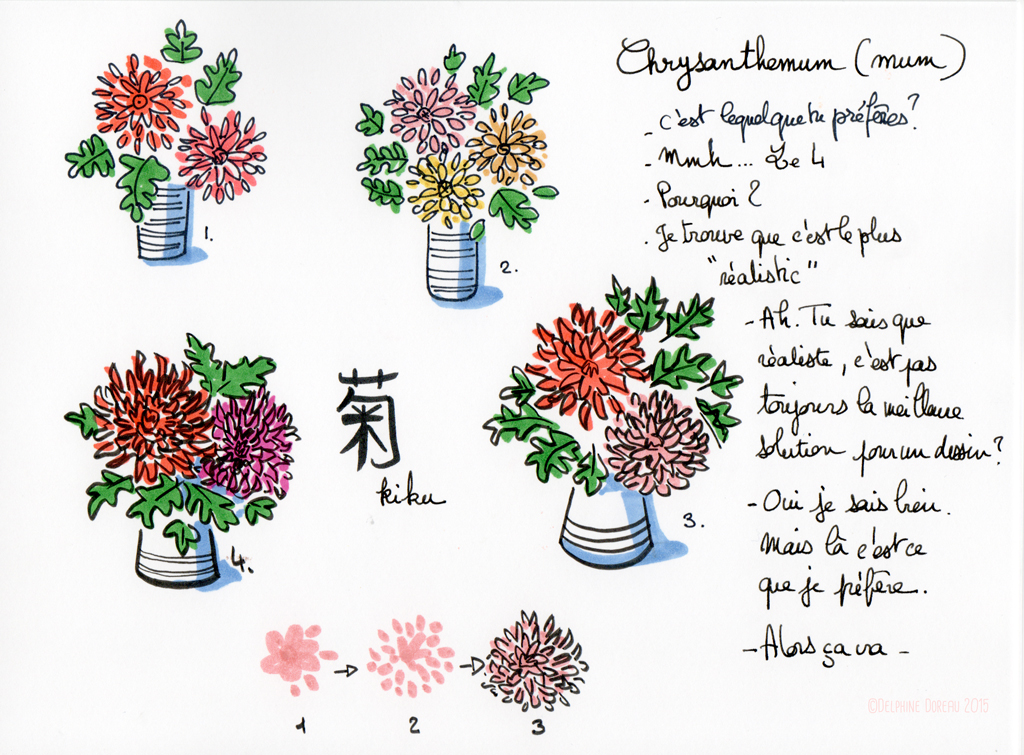 Chrysanthemum (mum)
- c'est lequel que tu préfères?
- Mmh... Le 4
- Pourquoi?
. Je trouve que c'est le plus
"réalistic"
- Ah. Tu sais que
réaliste, c'est pas
toujours la meilleure
solution pour un dessin?
- Oui je sais bien.
Mais là c'est ce
que je préfère.
- Alors ça va -
1.
2.
菊
kiku
3.
4.
1
2
3
©Delphine Doreau 2015